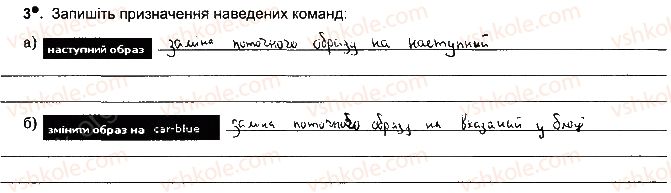 3. Запишіть призначення наведених команд:
а) наступний образ заміна поточного образу на наступний
б) змінити образ на car-blue заміна поточного образу на вказаний у блоці